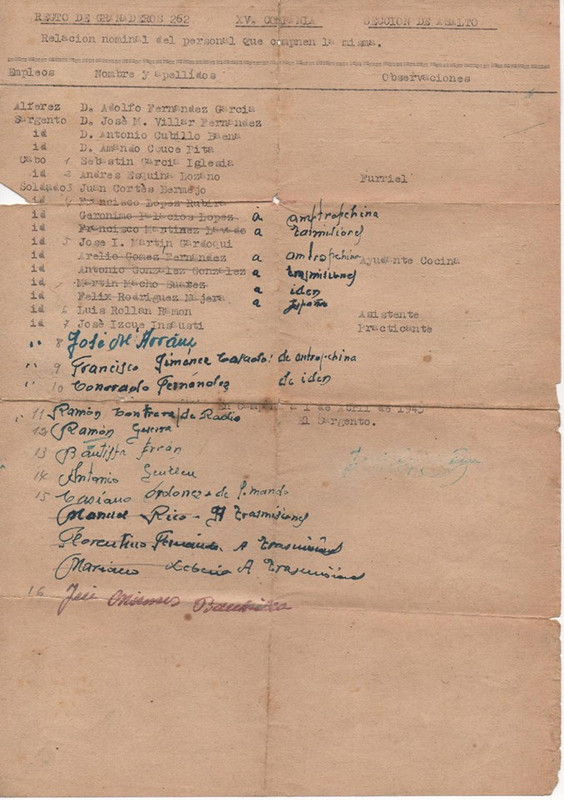 REGTO DE GRANADEROS 262 XVª COMPAÑIA SECCION DE ASALTO
Relacion nominal del personal que compnen la misma.
Empleos Nombre y apellidos Observaciones
Alferez D. Adolfo Fernandez Garcia
Sargento D. Josè M. Villar Fernandez
id D. Antonio Cubillo Baena
id D. Amando Couce Pita
Cabo 1 Sebastin Garcia Iglesia
id 2 Andres Esquina Lozano Furriel
Soldado 3 Juan Cortès Bermejo
id 4 Francisco Lopez Rubira
id Geronimo Palacios Lopez a antropchina
id Francisco Martinez a trasmisiones
id 5 Jose I. Martin Gardoqui
id Arelio Gomez Fernandez a antropchina Ayudante Cocina
id Antonio Gonzalez Gonzalez a trasmisiones
id Martin Macho Suarez a iden
id Felix Rodriguez Majera a España
id 6 Luis Rollan Ramon Asistente
id 7 Josè Izcue Insausti Practicante
8 José M.
9 Francisco Jiménez de antropchina
10 Conorado Fernández de iden
11 Ramón Contreras de Radio
En Campaña a 1 de Abril de 1943
12 Ramón
El Sargento.
13 Bautista
14 Antonio
15 Casiano Ordones de P. mando
Manuel Rico A Trasmisiones
Florentino Fernández A Trasmisiones
Mariano A Trasmisiones
16 José Bautista